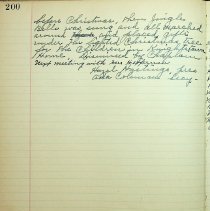 200
before Christmas, when Jingle
Bells was sung and all marched
around and placed gifts
under the lighted Christmas tree
for the Children in Knights Templar
Home, dismissed by Chaplain
Next meeting with Mrs
Hazel Hastings, Pres
Ada Coleman Secy.